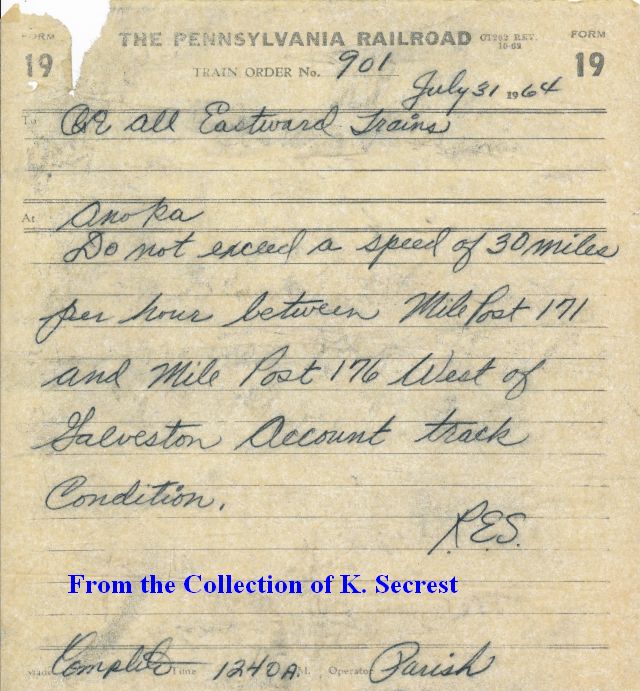 FORM 19 THE PENNSYLVANIA RAILROAD CT262 REV. 10-62 FORM 19
TRAIN ORDER No. 901
July 31 1964
To C&E All Eastward Trains
At Anoka
Do not exceed a speed of 30 miles
per hour between Mile Post 171
and Mile Post 176 West of
Galveston Account track
Condition.
R.E.S.
From the Collection of K. Secrest
Made Complete Time 1240 A.M. Operator Parish